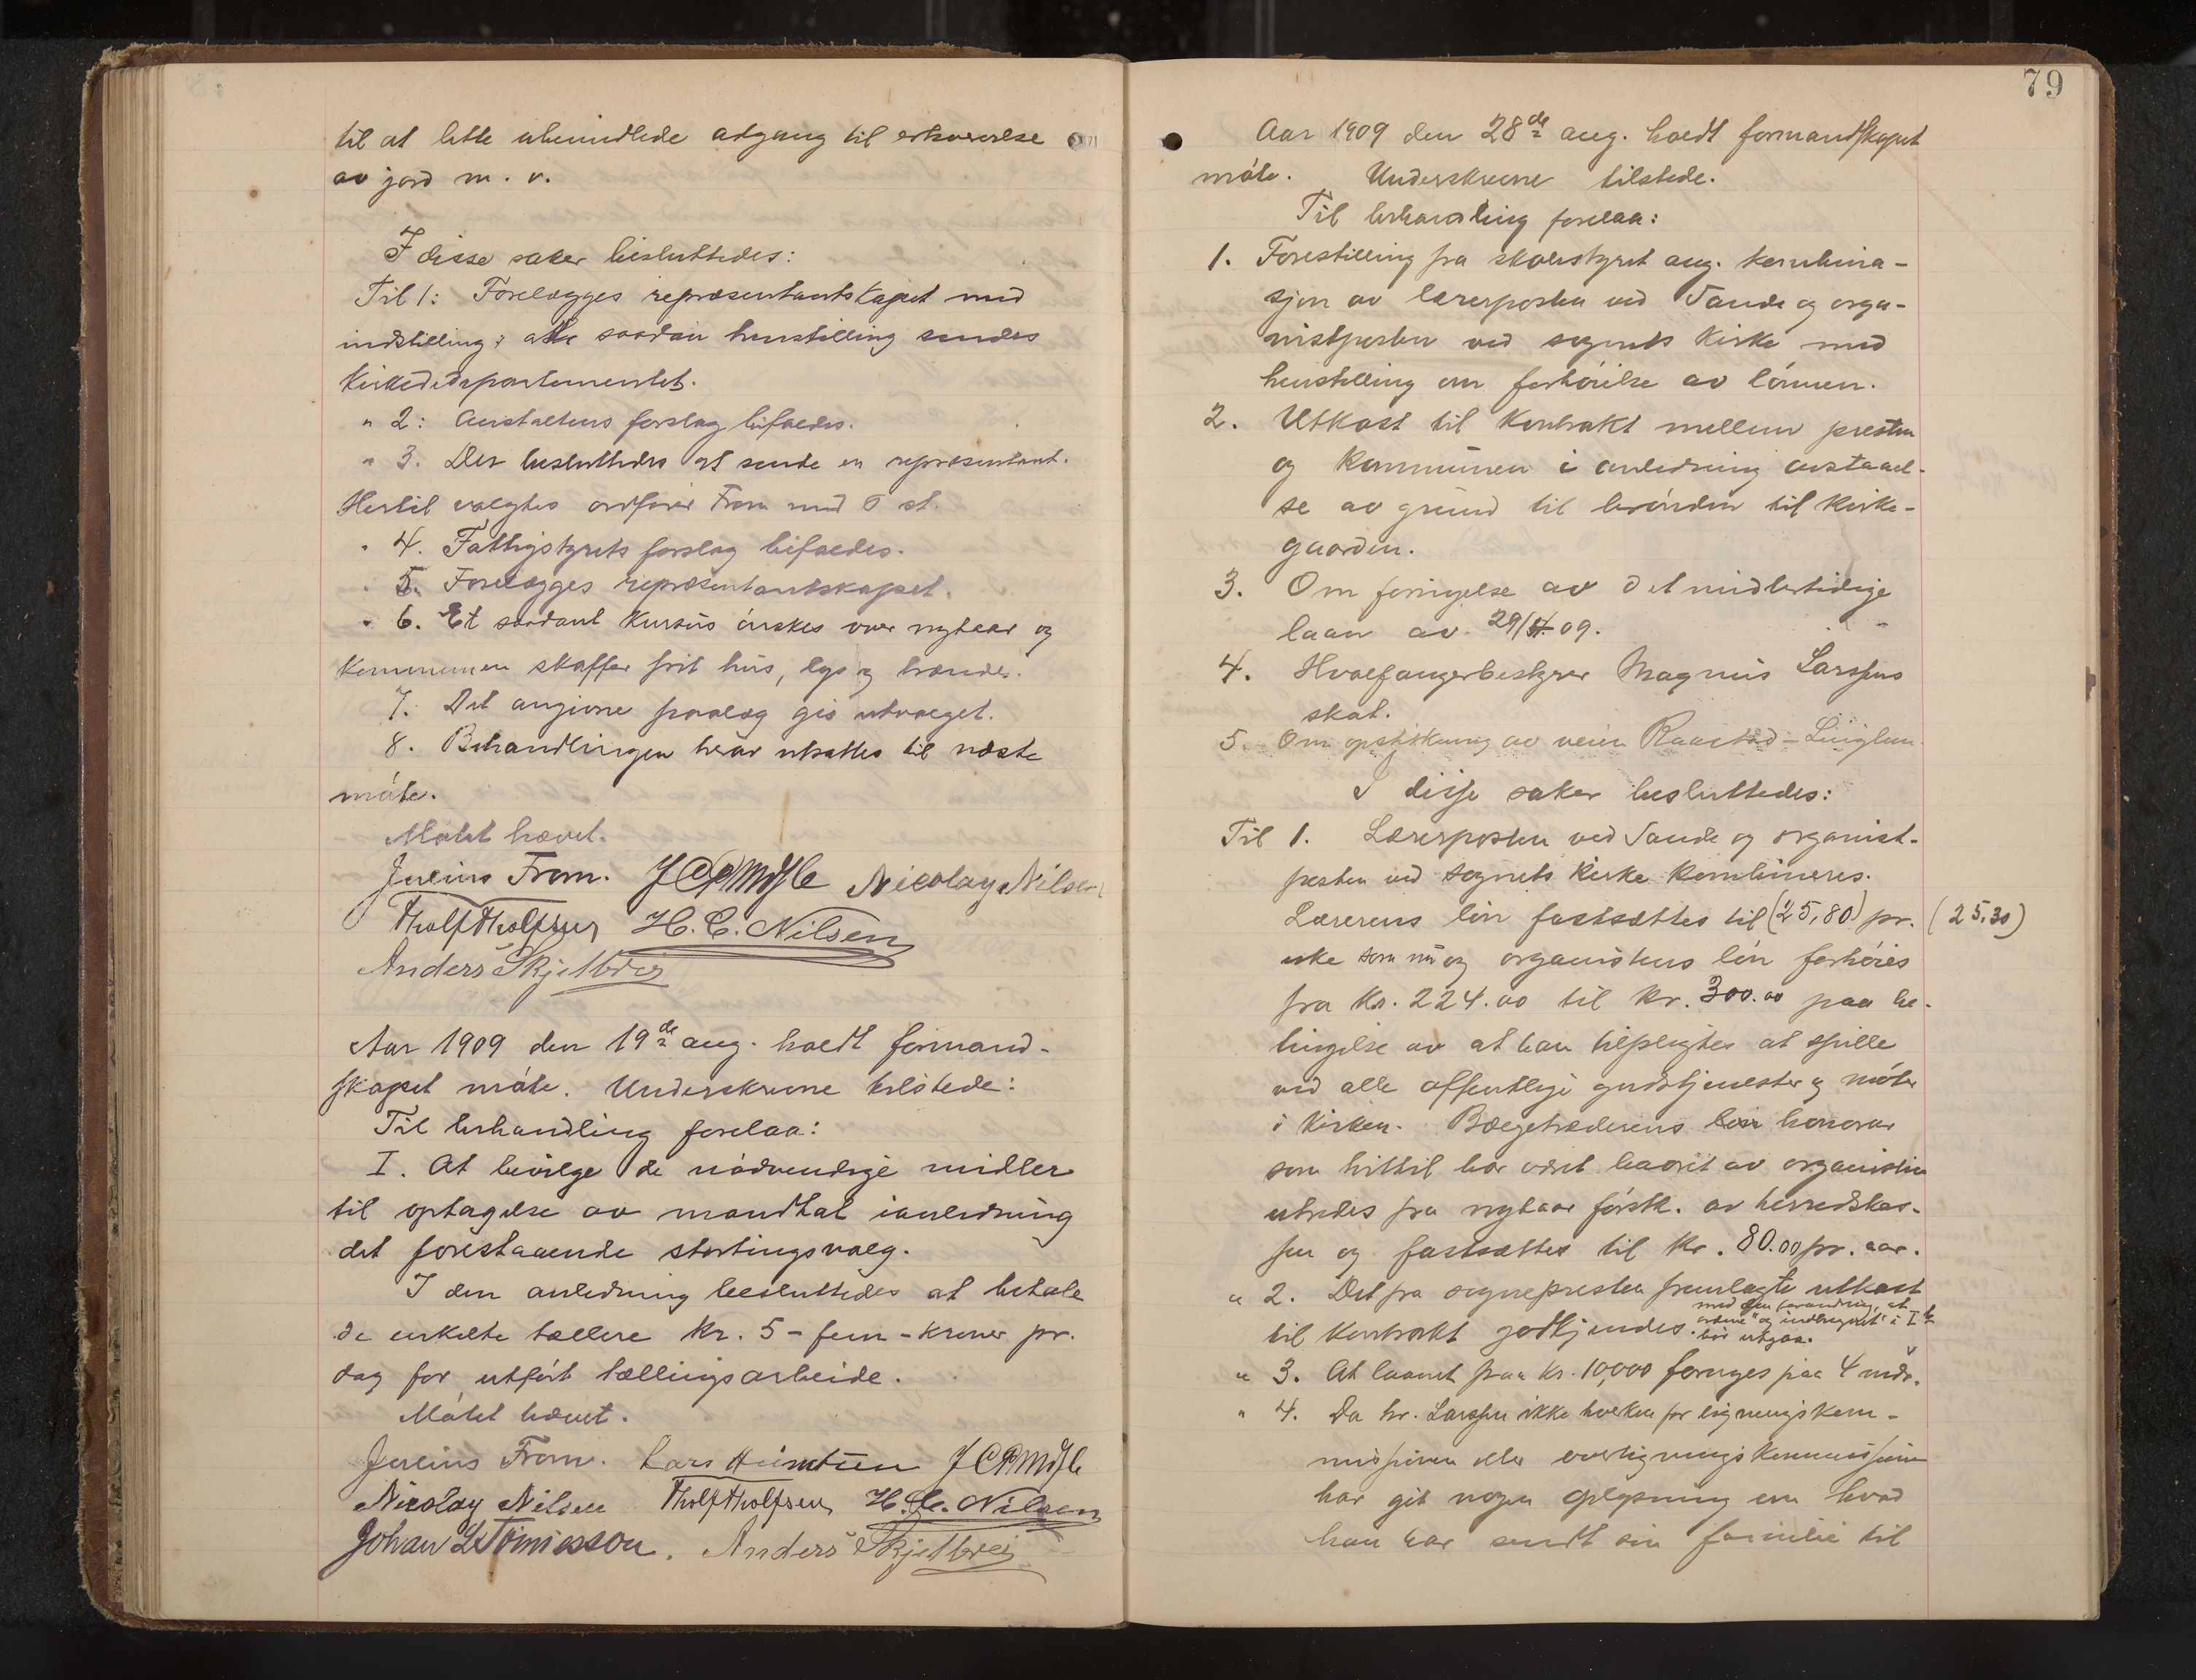 til at lette ubemidlede adgang til erhvervelse
av jord m. v.
I disse saker besluttedes:
Til 1: Forelægges repræsentantskapet med
indstilling: at saadan henstilling sendes
Kirkedepartementet.
" 2: Anstaltens forslag bifaldes.
" 3. Der besluttedes at sende en repræsentant.
Hertil valgtes ordfører Fron med 5 st.
" 4. Fattigstyrets forslag bifaldes.
" 5. Forelægges repræsentantskapet.
" 6. Et saadant kursus ønskes over nytaar og
kommunen skaffer frit hus, lys og brænde.
7. Det angivne paalæg gis utvalget.
8. Behandlingen herav utsattes til næste
møte.
Møtet hævet.
Julius Fron. Nicolay Nilsen
Tholf Tholfsen H. C. Nilsen
Anders Skjelbrei
Aar 1909 den 19de aug. holdt formand-
skapet møte. Underskrevne tilstede:
Til behandling forelaa:
I. At bevilge de nødvendige midler
til optagelse av mandtal i anledning
det forestaaende stortingsvalg.
I den anledning besluttedes at betale
de enkelte tællere kr. 5 - fem - kroner pr.
dag for utført tællingsarbeide.
Møtet hævet.
Julius Fron. Lars
Nicolay Nilsen Tholf Tholfsen H. C. Nilsen
Johan L. Anders Skjelbrei
79
Aar 1909 den 28de aug. holdt formandskapet
møte. Underskrevne tilstede.
Til behandling forelaa:
1. Forestilling fra skolestyret ang. kombina-
sjon av lærerposten ved Sande og orga-
nistposten ved sognets kirke med
henstilling om forhøielse av lønnen.
2. Utkast til kontrakt mellem presten
og kommunen i anledning avstaael-
se av grund til brønden til kirke-
gaarden.
3. Om fornyelse av det midlertidige
laan av 29/4 09.
4. Hvalfangerbestyrer Magnus Larssens
skat.
5. Om av veien Raastad -
I disse saker besluttedes:
Til 1. Lærerposten ved Sande og organist-
posten ved sognets kirke kombineres.
Lærerens løn fastsættes til (25,80) pr. (25,30)
uke som nu og organistens løn forhøies
fra kr. 224.00 til kr. 300.00 paa be-
tingelse av at han tilpligtes at spille
ved alle offentlige gudstjenester og møter
i kirken. Bælgetræderens løn honorar
som hittil har været baaret av organisten
utredes fra nytaar førstk. av herredskas-
sen og fastsættes til kr. 80.00 pr. aar.
" 2. Det fra sognepresten fremlagte utkast
med den forandring, at
ordene "og indhegnet" i I
til kontrakt godkjendes. bør utgaa.
" 3. At laanet paa kr. 10,000 fornyes paa 4 mdr.
" 4. Da hr. Larssen ikke hverken for ligningskom-
missionen eller overligningskommissionen
har git nogen oplysning om hvad
han har sendt sin familie til